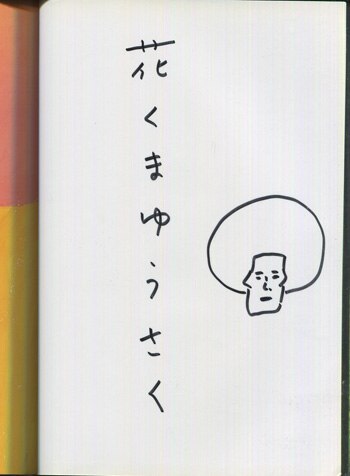 花くまゆうさく